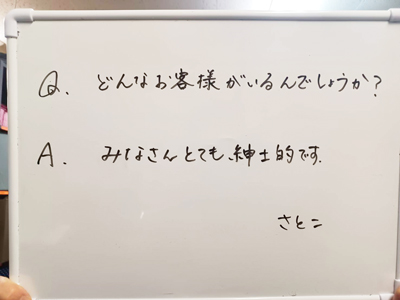 Q. どんなお客様がいるんでしょうか?
A. みなさんとても、紳士的です.
さとこ